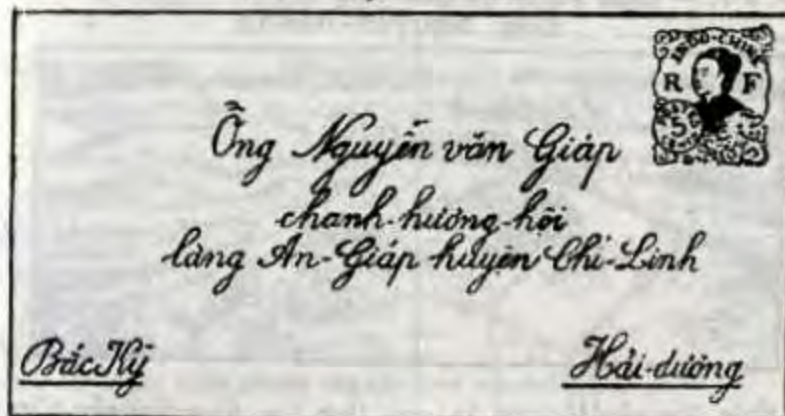 INDO-CHINE
R F
5
Ông Nguyễn văn Giáp
chanh-hương-hội
làng An-Giáp huyện Chí-Linh
Bắc Kỳ
Hải-dương